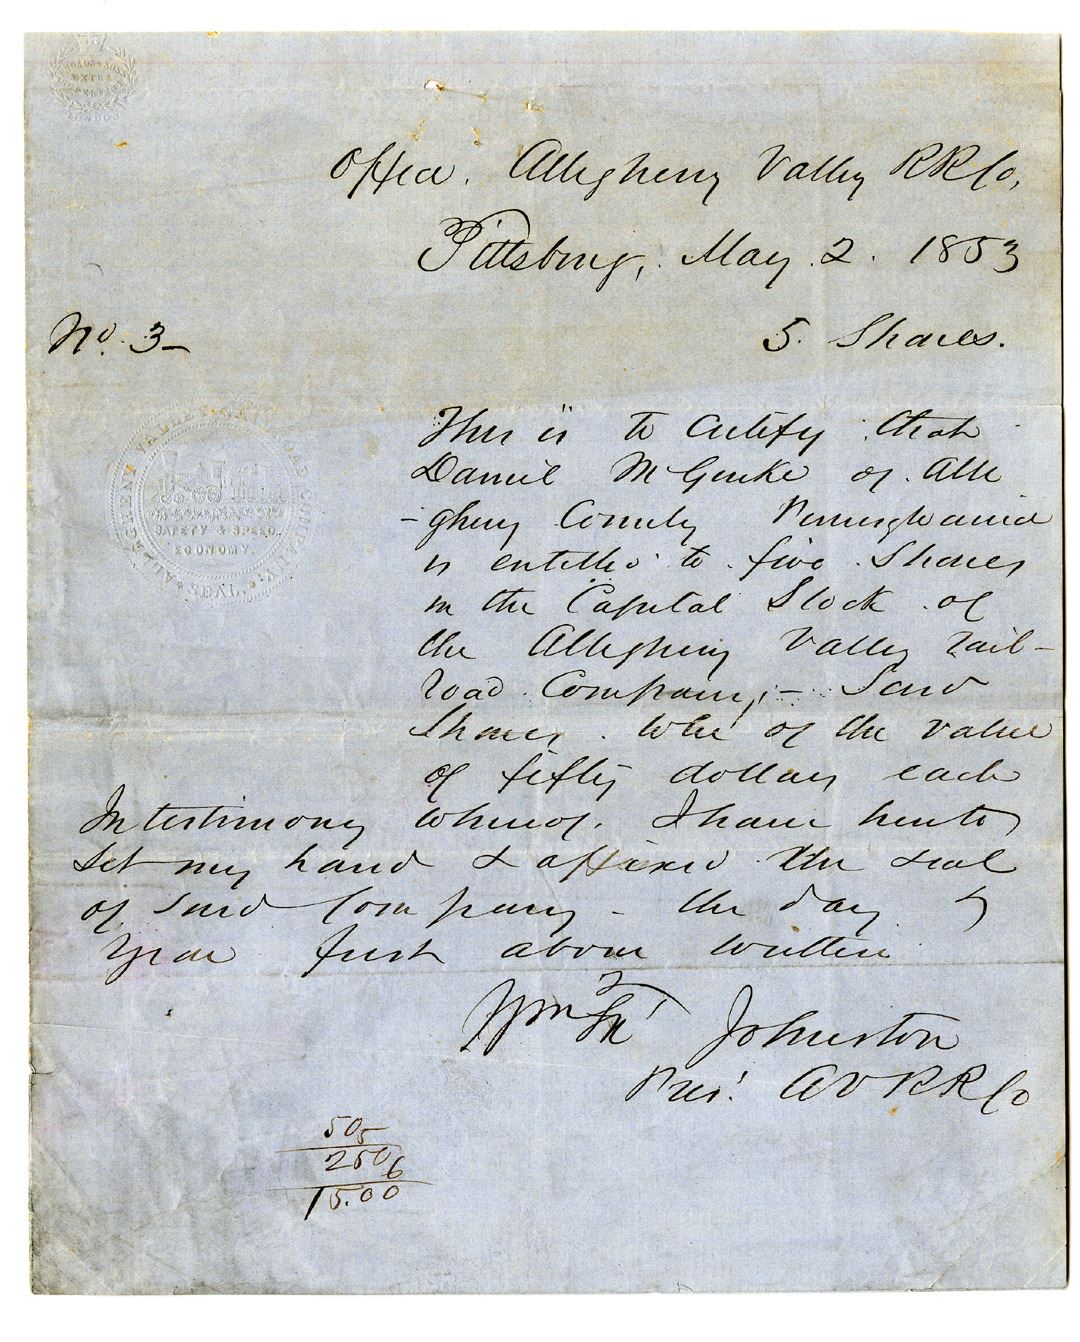 EXTRA
LONDON
Office. Allegheny Valley RR Co,
Pittsburg, May 2. 1853
No. 3_
5. Shares.
ALLEGHENY VALLEY RAILROAD COMPANY.
SAFETY & SPEED.
ECONOMY.
SEAL.
This is to certify that
Daniel of Alle
-gheny County Pennsylvania
is entitled to five Shares
in the Capital Stock of
the Allegheny Valley rail-
road Company;- Said
Shares to be of the value
of fifty dollars each
In testimony whereof. I have hereto
set my hand & affixed the seal
of said Company - the day &
year first above written
Wm F. Johnston
Pres. A V R R Co
50
5
250
6
15.00